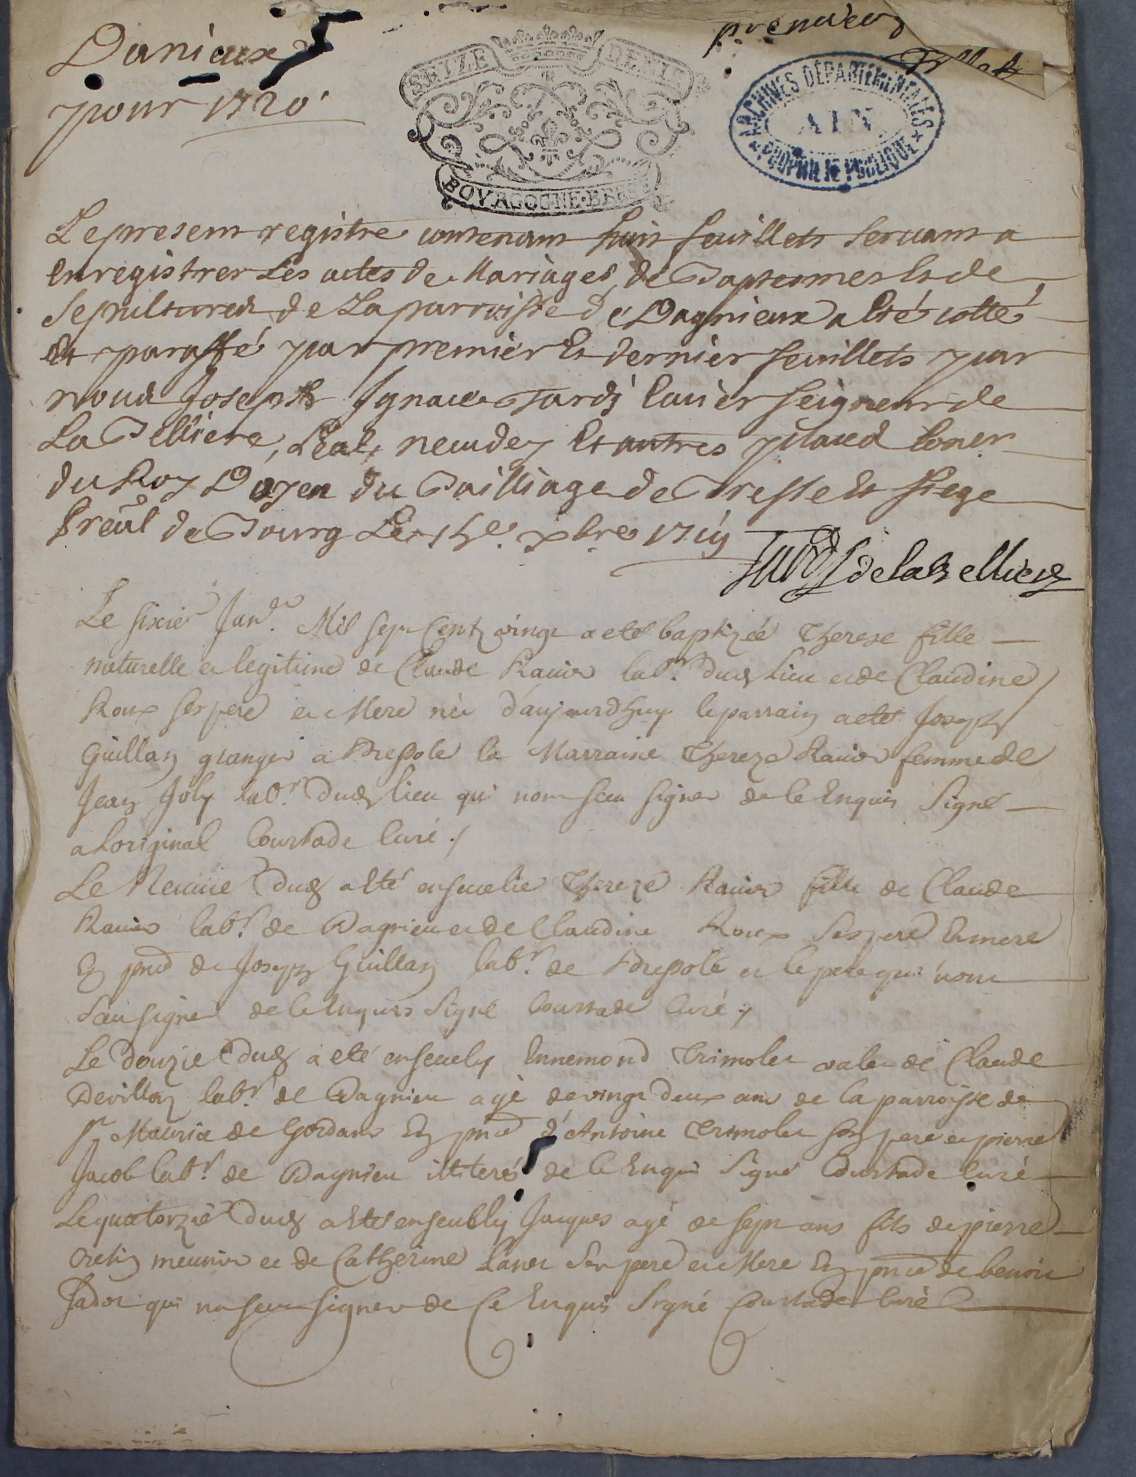 Danieux
pour 1720
premier
fillet
SEIZE DENIE
BOURGOGNE BRE
ARCHIVES DÉPARTEMENTALES
AIN
PROPRIÉTÉ PUBLIQUE
Le present registre contenant huit feuillets servant a
Enregistrer Les actes de Mariages, de Baptesmes Et de
Sepultures de La parroisse de Dagnieux a Esté cotté
Et paraffé par premier Et dernier feuillets par
nous Joseph Ignace Tardy Ecuier seigneur de
La Belliere, Leal, neudey Et autres places Coner
du Roy Doyen du Bailliage de Bresse Et siege
Preal de Bourg Le xbre 1719
Tardy de la Belliere
Le sixie Janr Mil sept Cent vingt a eté baptizée Therese fille
naturelle et legitime de Claude Ravier labr dud lieu et de Claudine
Roux ses pere et Mere née d'aujourd'huy le parrain a eté Joseph
Guillan granger a Bressole la Marraine Thereze Ravier femme de
Jean Joly labr dud lieu qui nont sceu signer de ce Enquis Signé
a Loriginal Courtade Curé
Le Neuvie dud a Eté ensevelie Thereze Ravier fille de Claude
Ravier labr de Dagnieu et de Claudine Roux Ses pere Et mere
En pnce de Joseph Guillan labr de Bressole et le pere qui nont
Sceu signer de ce Enquis Signé Courtade Curé
Le douzie dud a eté ensevely Ennemond Trimolet valet de Claude
Devillaz labr de Dagnieu agé de vingt deux ans de la parroisse de
St Maurice de Gordans En pnce d'Antoine Trimolet son pere et pierre
Jacob labr de Dagnieu illiterés de ce Enquis Signé Courtade Curé
Le quatorzie dud a Eté ensevely Jacques agé de sept ans fils de pierre
meunier et de Catherine Ses pere et Mere En pnce de benoit
Jador qui na sceu signer de Ce Enquis Signé Courtade Curé